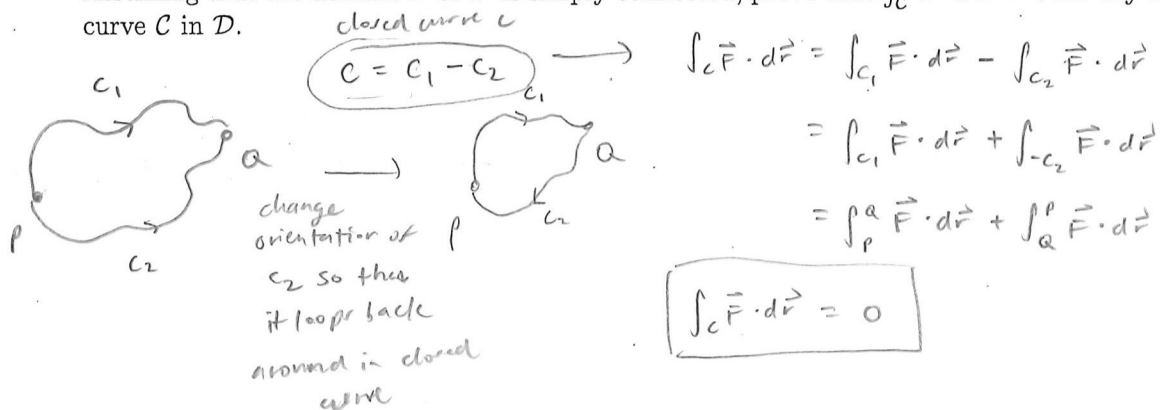 curve C in D.
closed curve C
C = C₁ - C₂
∫_C F⃗ · dr⃗ = ∫_C₁ F⃗ · dr⃗ - ∫_C₂ F⃗ · dr⃗
= ∫_C₁ F⃗ · dr⃗ + ∫_-C₂ F⃗ · dr⃗
= ∫_P^Q F⃗ · dr⃗ + ∫_Q^P F⃗ · dr⃗
∫_C F⃗ · dr⃗ = 0
C₁
Q
P
C₂
change
orientation of
C₂ so that
it loops back
around in closed
curve
C₁
Q
P
C₂